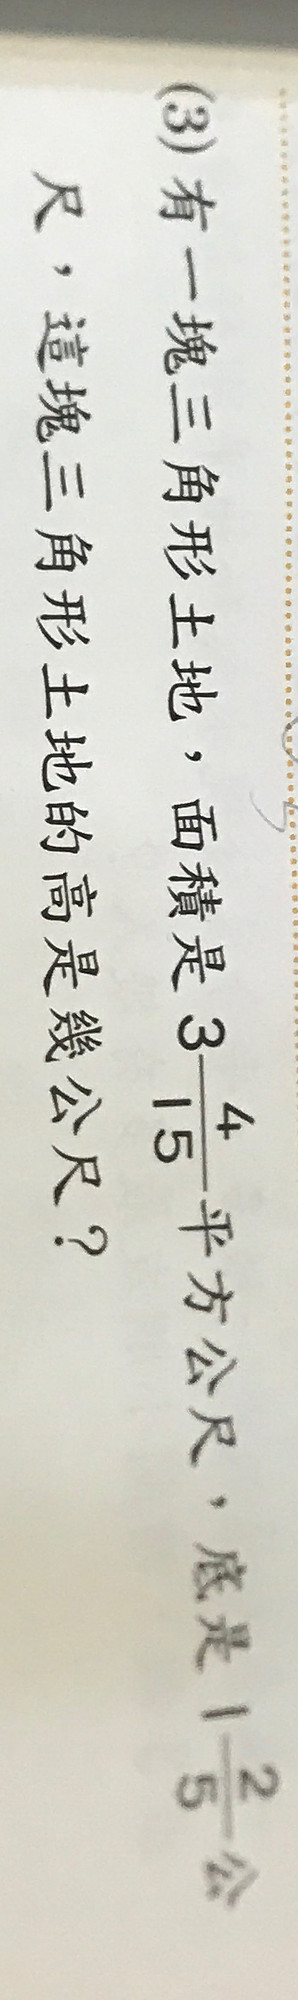 (3) 有一塊三角形土地，面積是 3 4/15 平方公尺，底是 1 2/5 公
尺，這塊三角形土地的高是幾公尺？